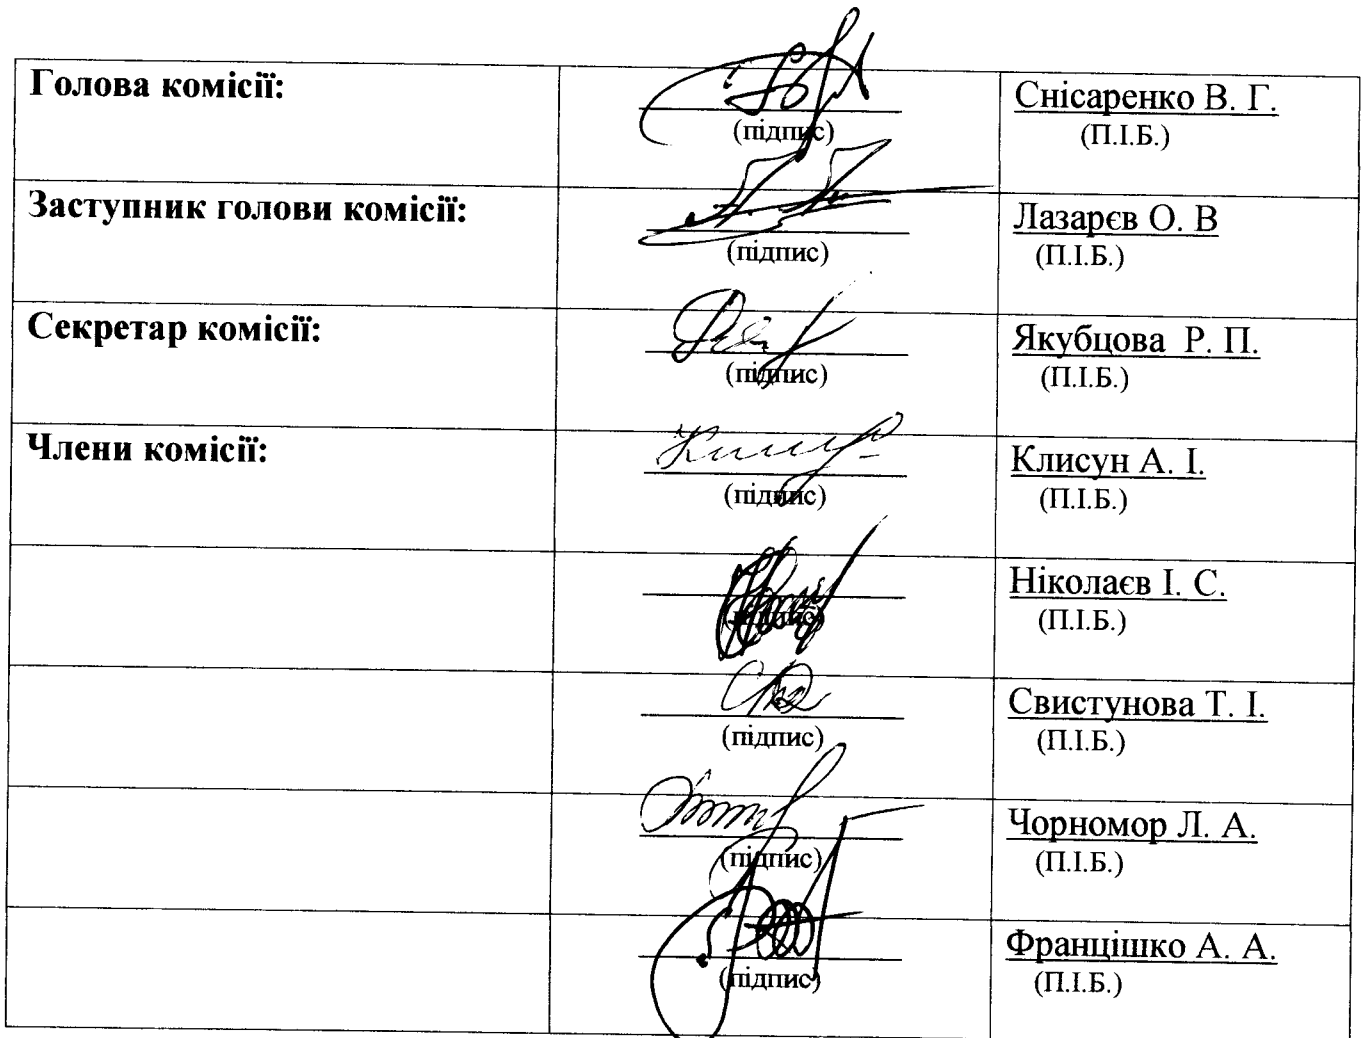 Голова комісії:
(підпис)
Снісаренко В. Г.
(П.І.Б.)
Заступник голови комісії:
(підпис)
Лазарєв О. В
(П.І.Б.)
Секретар комісії:
(підпис)
Якубцова Р. П.
(П.І.Б.)
Члени комісії:
(підпис)
Клисун А. І.
(П.І.Б.)
(підпис)
Ніколаєв І. С.
(П.І.Б.)
(підпис)
Свистунова Т. І.
(П.І.Б.)
(підпис)
Чорномор Л. А.
(П.І.Б.)
(підпис)
Францішко А. А.
(П.І.Б.)